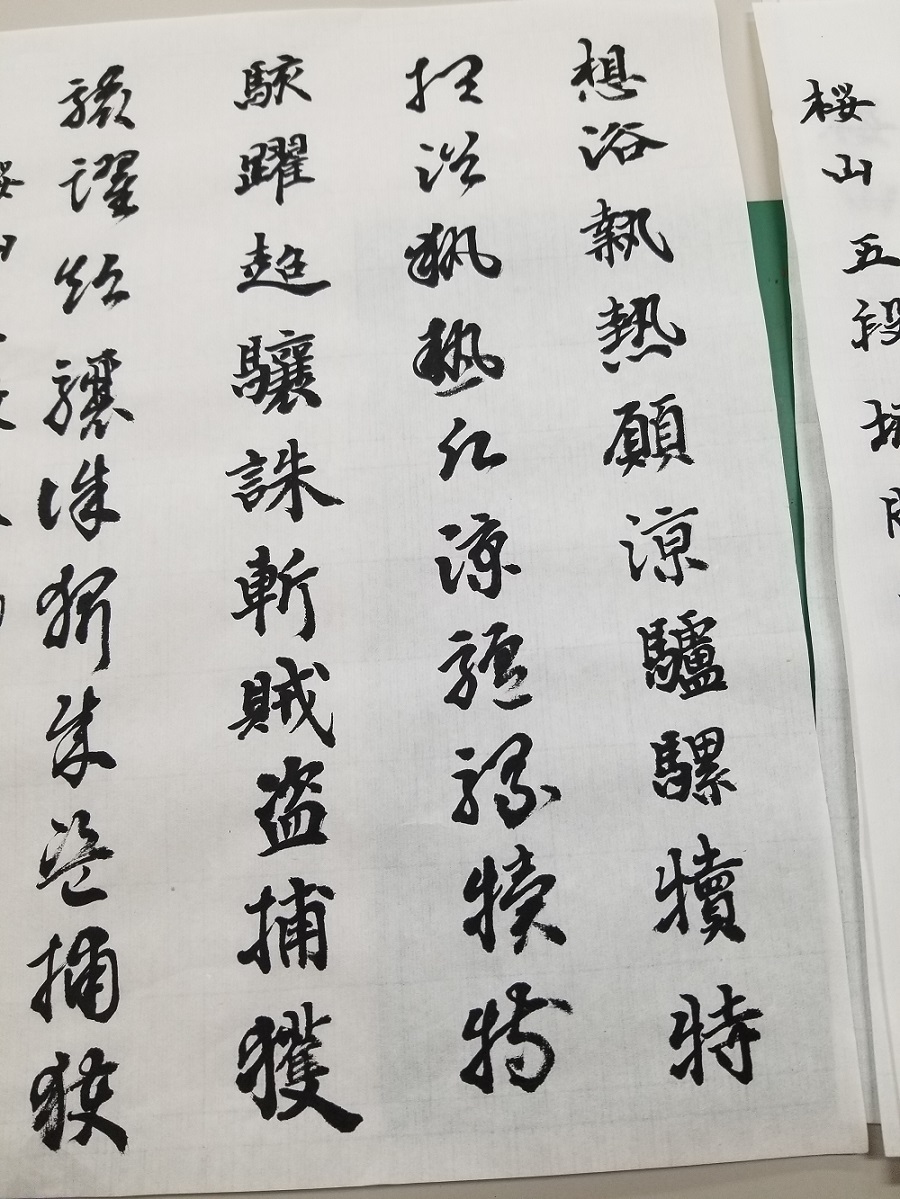 桜山五段
想浴執熱願涼驢騾犢特
想浴執熱願涼驢騾犢特
駭躍超驤誅斬賊盗捕獲
駭躍超驤誅斬賊盗捕獲